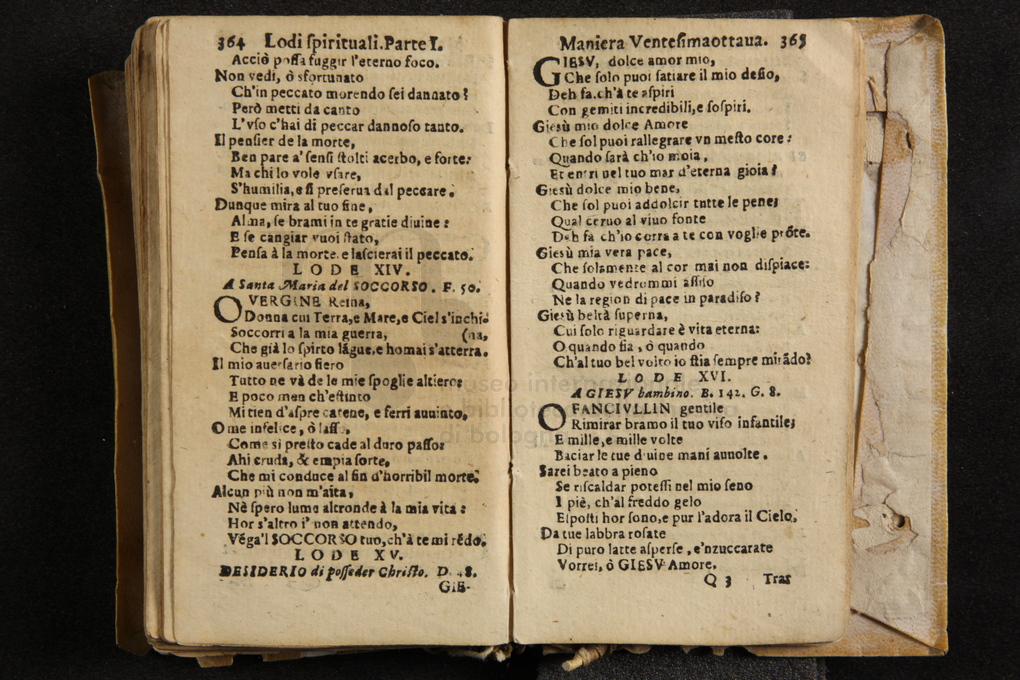 364 Lodi ſpirituali. Parte I.
Acciò poſſa fuggir l'eterno foco.
Non vedi, ò sfortunato
Ch'in peccato morendo ſei dannato?
Però metti da canto
L'vſo c'hai di peccar dannoſo tanto.
Il penſier de la morte,
Ben pare a' ſenſi ſtolti acerbo, e forte:
Ma chi lo vole vſare,
S'humilia, e ſi preſerua dal peccare.
Dunque mira al tuo fine,
Alma, ſe brami in te gratie diuine:
E ſe cangiar vuoi ſtato,
Penſa à la morte, e laſcierai il peccato.
LODE XIV.
A Santa Maria del SOCCORSO. F. 50.
O VERGINE Reina,
Donna cui Terra, e Mare, e Ciel s'inchi-
Soccorri a la mia guerra, (na,
Che già lo ſpirto lãgue, e homai s'atterra.
Il mio auerſario fiero
Tutto ne và de le mie ſpoglie altiero:
E poco men ch'eſtinto
Mi tien d'aſpre catene, e ferri auuinto.
O me infelice, ò laſſo,
Come sì preſto cade al duro paſſo:
Ahi cruda, & empia ſorte,
Che mi conduce al fin d'horribil morte.
Alcun più non m'aita,
Nè ſpero lume altronde à la mia vita:
Hor s'altro i' non attendo,
Vẽga'l SOCCORSO tuo, ch'à te mi rẽdo.
LODE XV.
DESIDERIO di poſſeder Chriſto. D. 48.
GIE-
Maniera Venteſimaottaua. 365
GIESV, dolce amor mio,
Che ſolo puoi ſatiare il mio deſio,
Deh fa, ch'à te aſpiri
Con gemiti incredibili, e ſoſpiri.
Gieſù mio dolce Amore
Che ſol puoi rallegrare vn meſto core:
Quando ſarà ch'io moia,
Et entri nel tuo mar d'eterna gioia?
Gieſù dolce mio bene,
Che ſol puoi addolcir tutte le pene;
Qual ceruo al viuo fonte
Deh fà ch'io corra a te con voglie prõte.
Gieſù mia vera pace,
Che ſolamente al cor mai non diſpiace:
Quando vedrommi aſſiſo
Ne la region di pace in paradiſo?
Gieſù beltà ſuperna,
Cui ſolo riguardare è vita eterna:
O quando fia, ò quando
Ch'al tuo bel volto io ſtia ſempre mirãdo?
LODE XVI.
A GIESV bambino. B. 142. G. 8.
O FANCIVLLIN gentile
Rimirar bramo il tuo viſo infantile;
E mille, e mille volte
Baciar le tue diuine mani auuolte.
Sarei beato a pieno
Se riſcaldar poteſſi nel mio ſeno
I piè, ch'al freddo gelo
Eſpoſti hor ſono, e pur l'adora il Cielo.
Da tue labbra roſate
Di puro latte aſperſe, e'nzuccarate
Vorrei, ò GIESV Amore,
Q 3 Trar